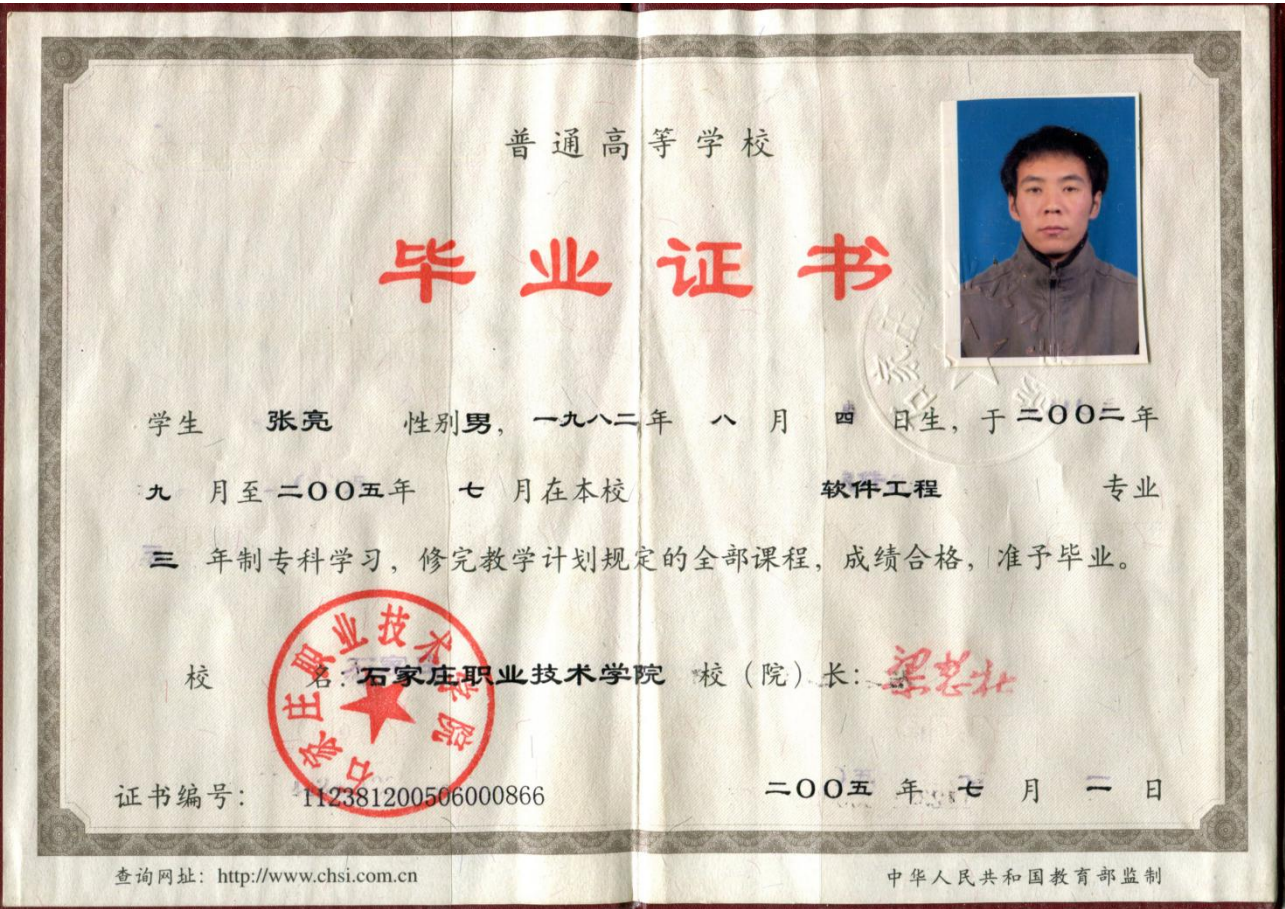 普通高等学校
毕业证书
学生 张亮 性别男，一九八二年 八 月 四 日生，于二〇〇二年
九 月至二〇〇五年 七 月在本校 软件工程 专业
三 年制专科学习，修完教学计划规定的全部课程，成绩合格，准予毕业。
校 名：石家庄职业技术学院 校（院）长：
石家庄职业技术学院
证书编号： 112381200506000866 二〇〇五 年 七 月 一 日
查询网址：http://www.chsi.com.cn 中华人民共和国教育部监制